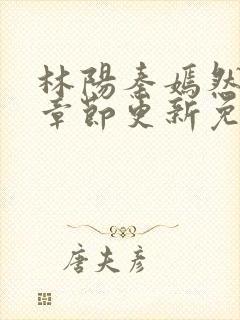 林陽秦嫣然
章節更新免
唐夫彥